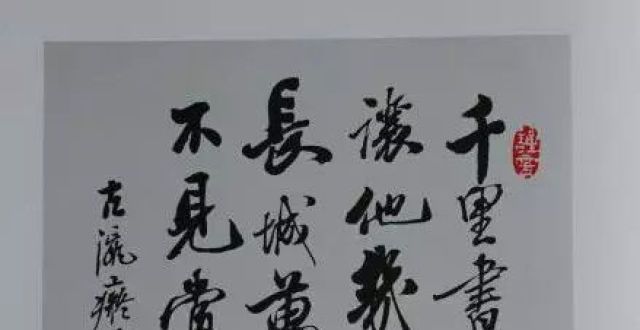 千里書
讓他幾
長城萬
不見當
古瀛